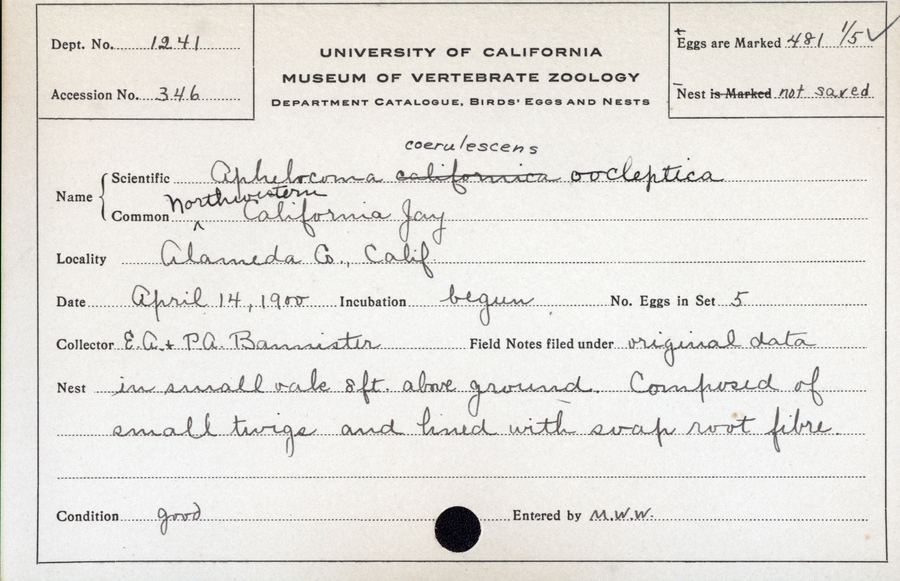 Dept. No. 1241
Accession No. 346
UNIVERSITY OF CALIFORNIA
MUSEUM OF VERTEBRATE ZOOLOGY
DEPARTMENT CATALOGUE, BIRDS' EGGS AND NESTS
Eggs are Marked 481 1/5 ✓
Nest is Marked not saved
coerulescens
Name { Scientific Aphelocoma californica oocleptica
Northwestern
Common ^ California Jay
Locality Alameda Co., Calif.
Date April 14, 1900 Incubation begun No. Eggs in Set 5
Collector E.A. + P.A. Bannister Field Notes filed under original data
Nest in small oak 8ft. above ground. Composed of
small twigs and lined with soap root fibre.
Condition good Entered by M.W.W.